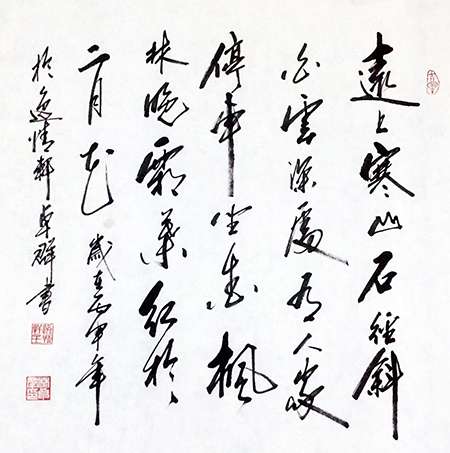 遠上寒山石徑斜
白雲深處有人家
停車坐愛楓
林晚霜葉紅於
二月花 歲在丙申年
於逸情軒卓群書